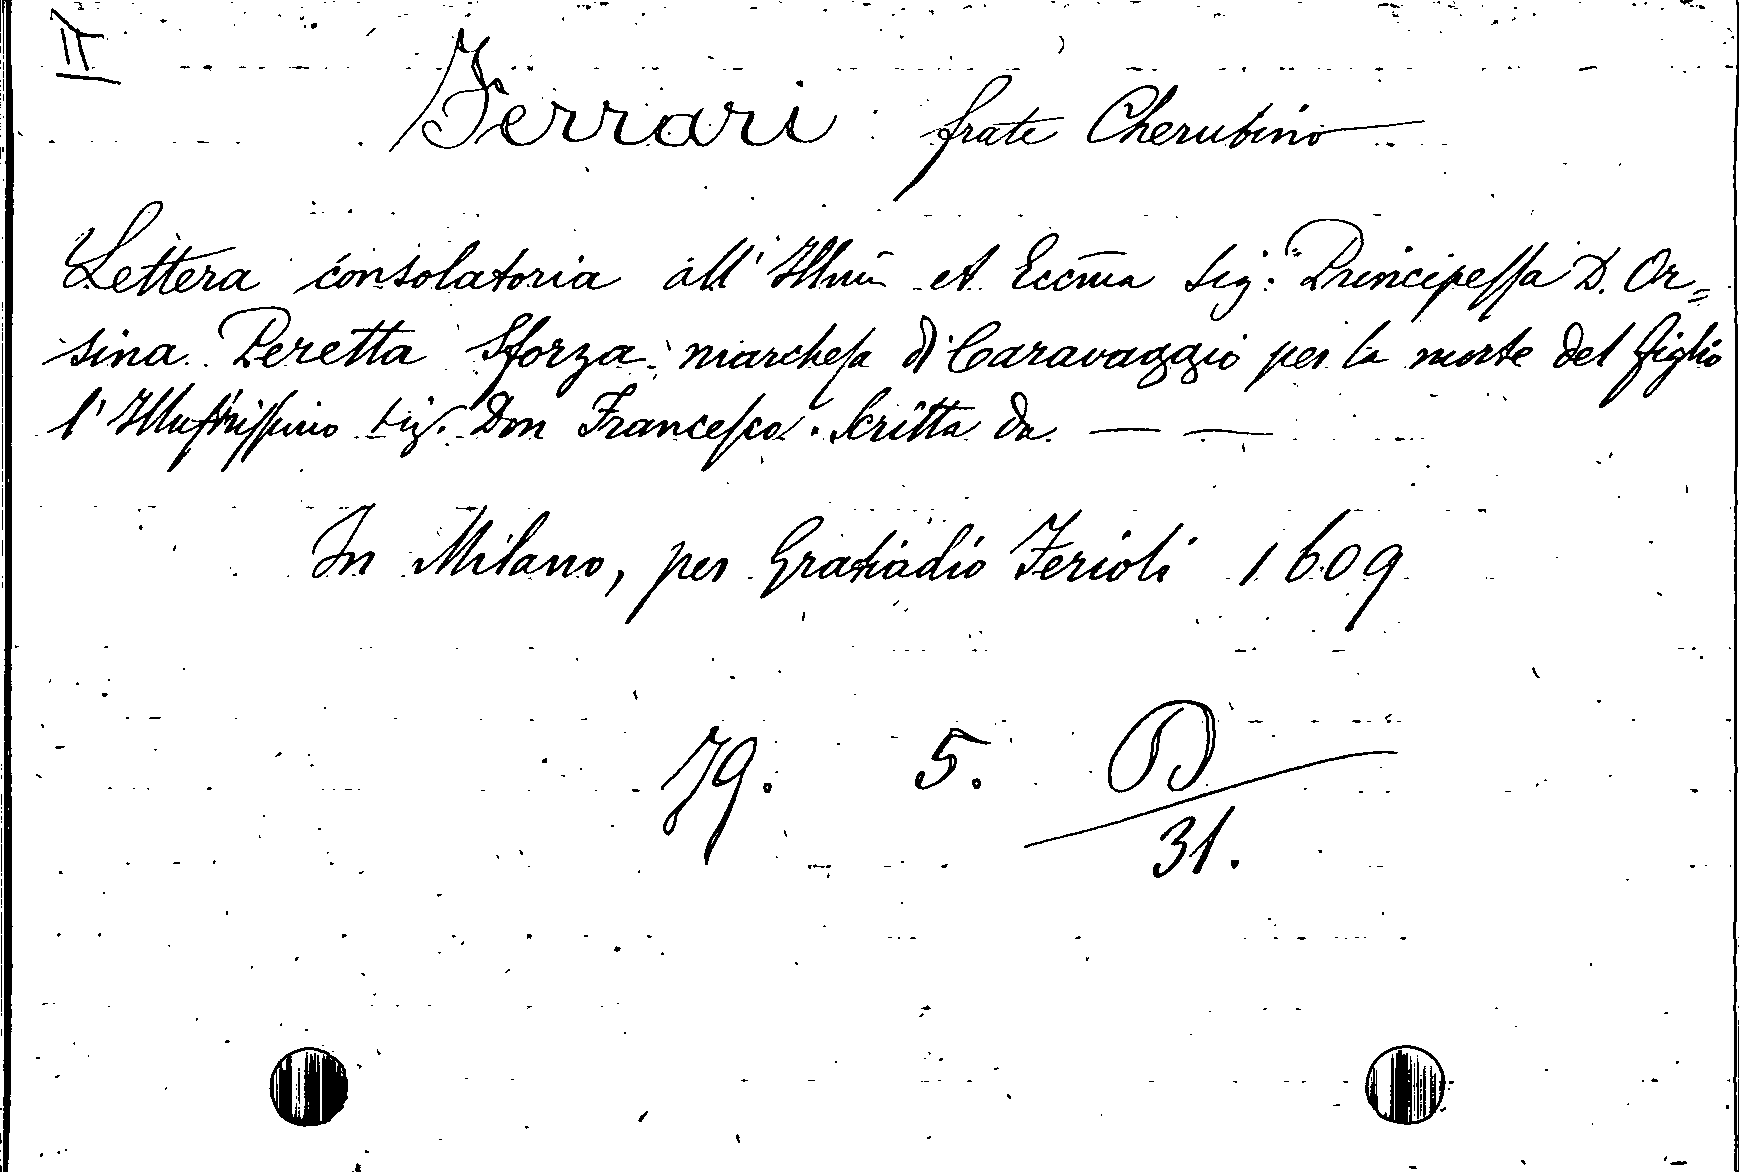 II
Ferrari frate Cherubino
Lettera consolatoria all' Illm̃a et Ecc̃ma Sig.ª Principessa D. Or=
sina Peretta Sforza marchesa di Caravaggio per la morte del figlio
l'Illustrissimo Sig.r Don Francesco. Scritta da — —
In Milano, per Gratiadio Ferioli 1609
79. 5. D
31.